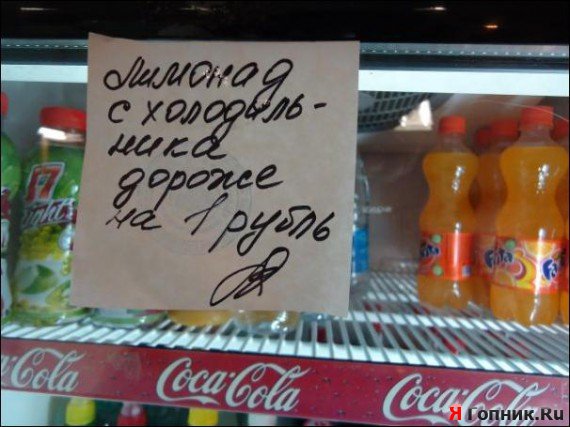 Лимонад
с холодиль-
ника
дороже
на 1 рубль
7
light
Fanta
Fanta
Coca-Cola
Coca-Cola
Coca-Cola
Я Гопник.Ru